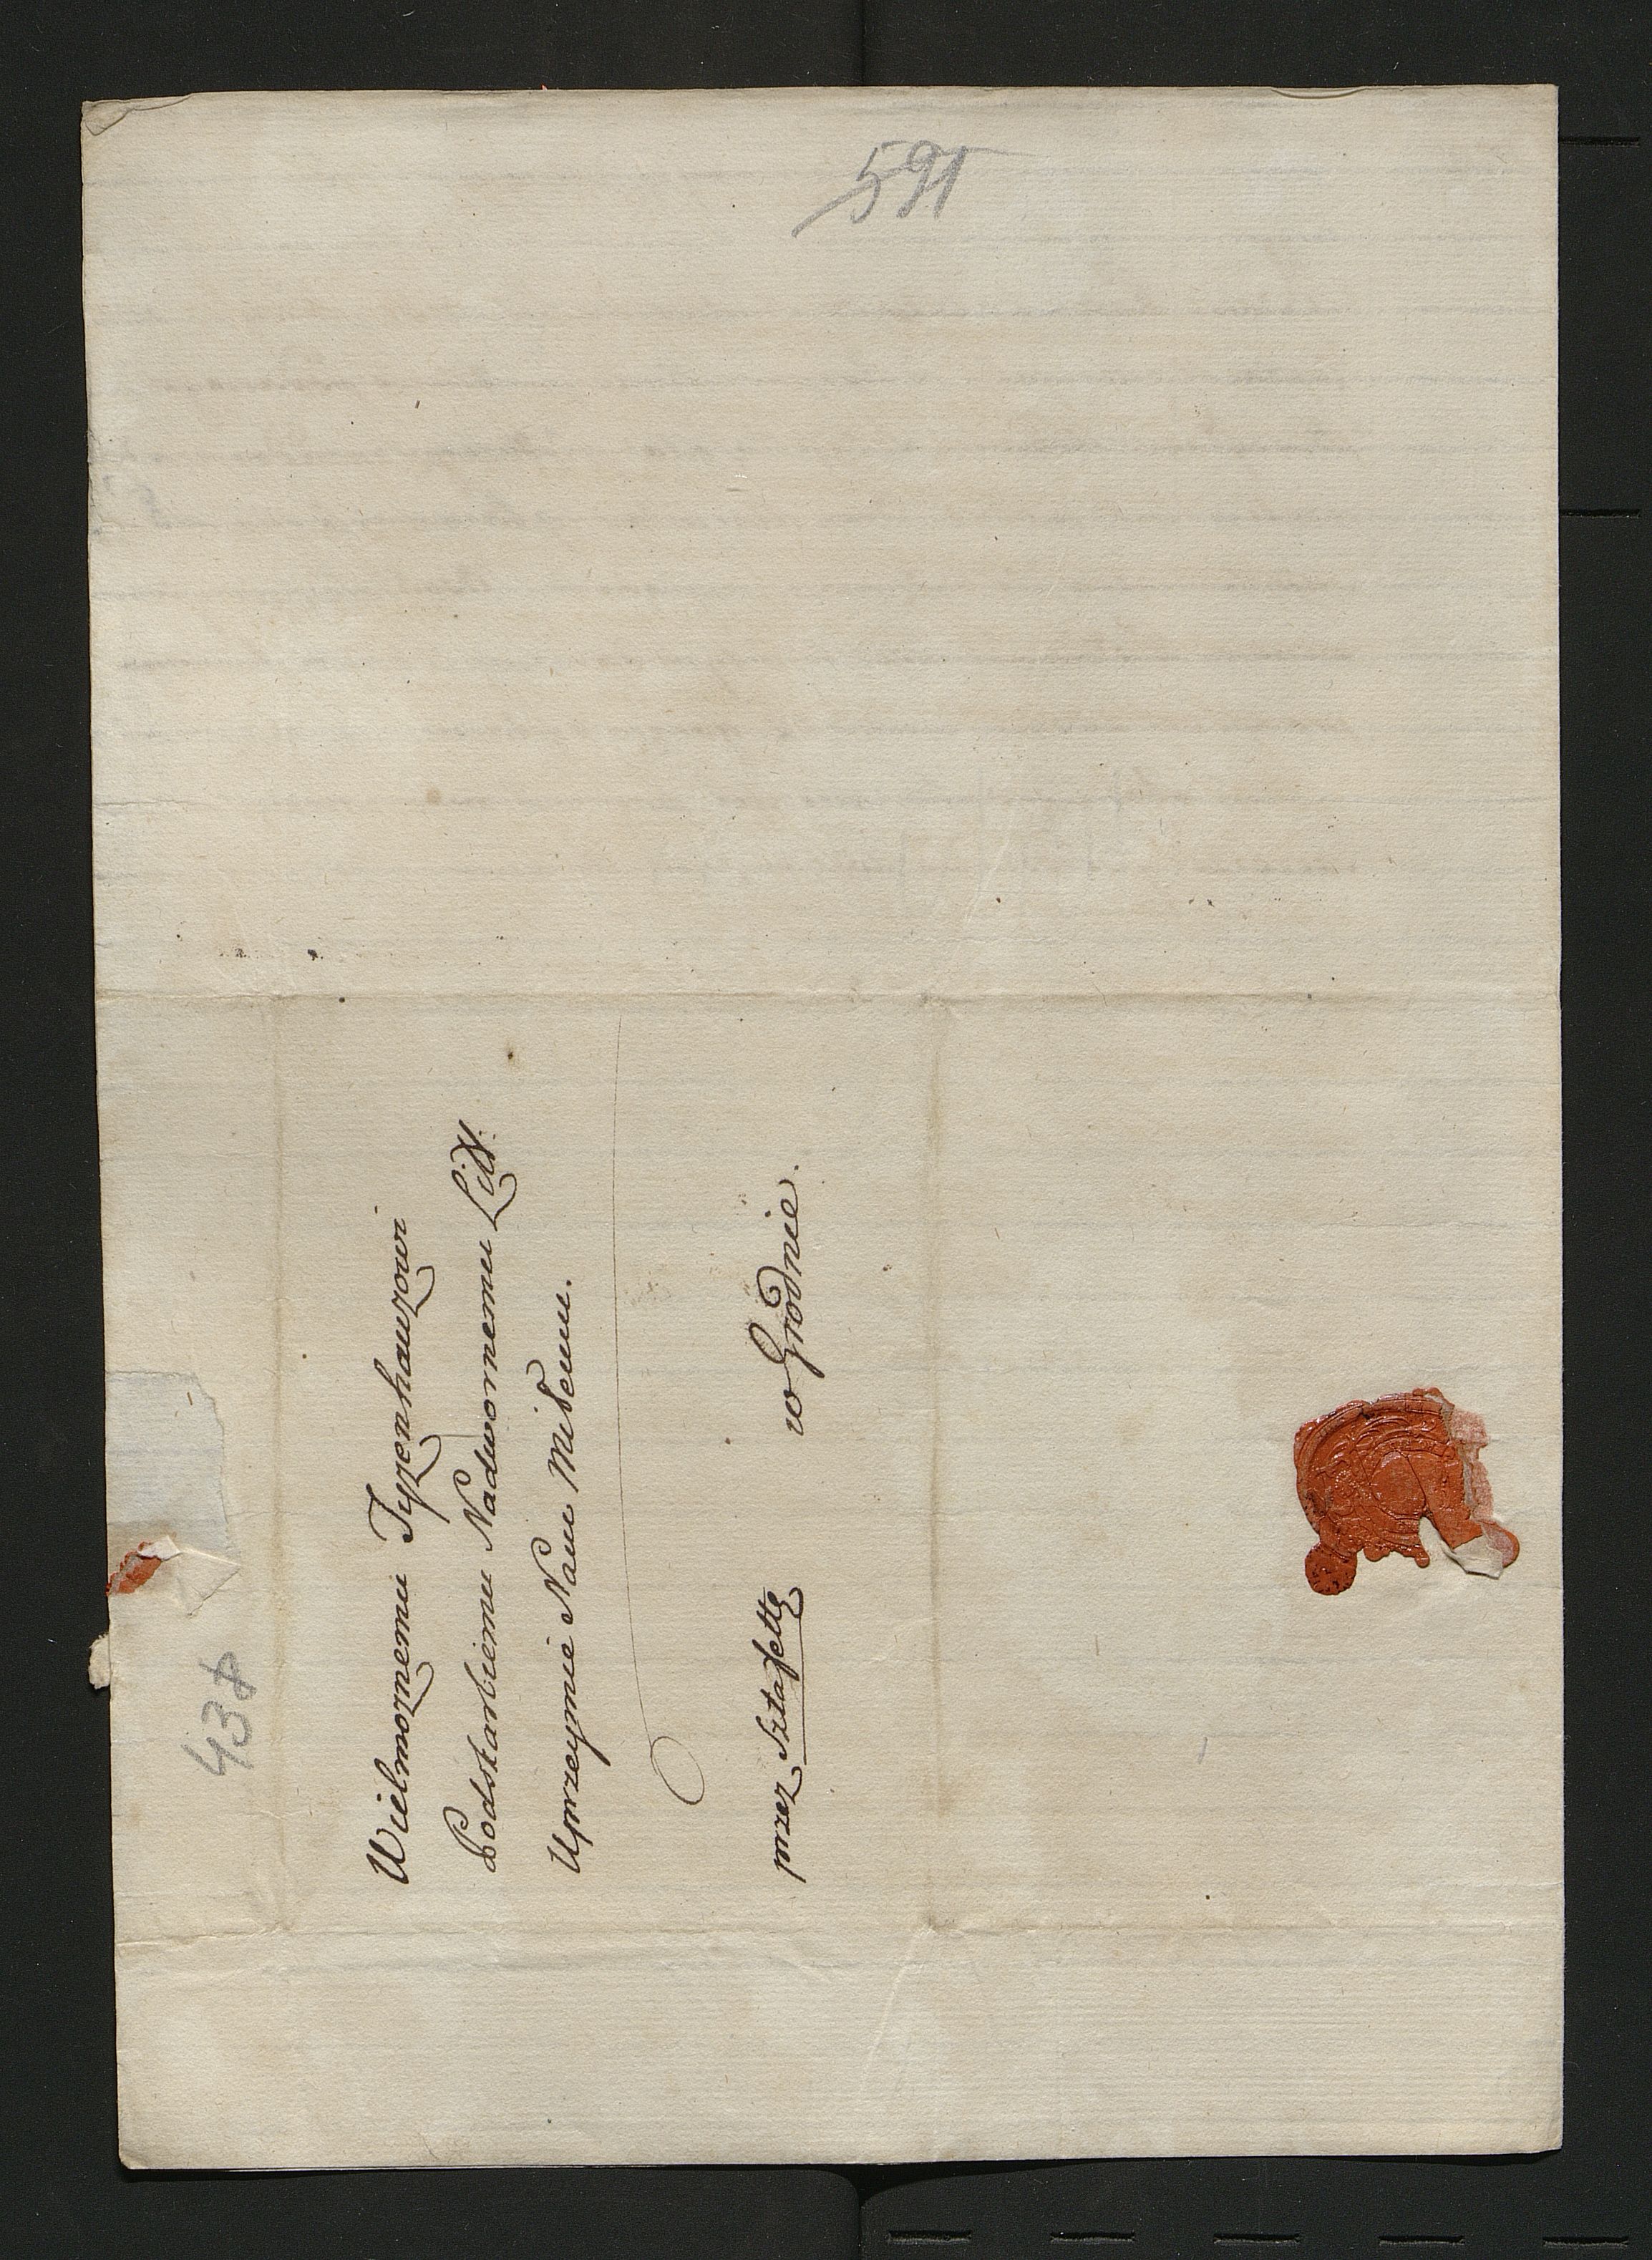 591
438
Wielmoznemu Tyzenhauzowi
Podskarbiemu Nadwornemu Litt:
Uprzeymie Nam Miłemu.
przez Sztafettę
w Grodnie.